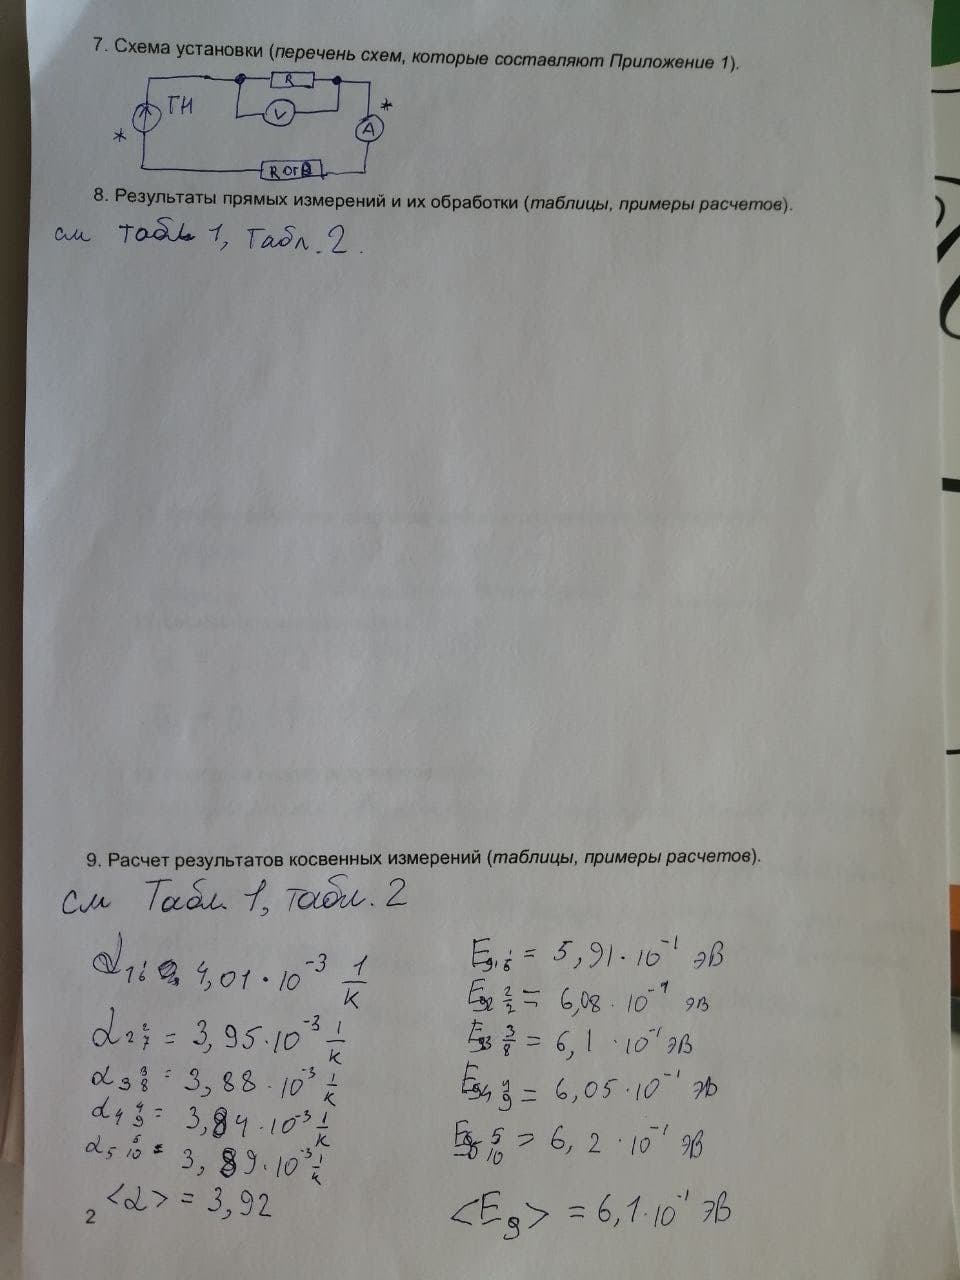 7. Схема установки (перечень схем, которые составляют Приложение 1).
R
ГН
V
*
A
*
R огр
8. Результаты прямых измерений и их обработки (таблицы, примеры расчетов).
см табл 1, Табл. 2.
9. Расчет результатов косвенных измерений (таблицы, примеры расчетов).
см Табл 1, табл. 2
α₁ ¹⁄₆ = 4,01 · 10⁻³ 1/K
α₂ ²⁄₇ = 3,95 · 10⁻³ 1/K
α₃ ³⁄₈ = 3,88 · 10⁻³ 1/K
α₄ ⁴⁄₉ = 3,84 · 10⁻³ 1/K
α₅ ⁵⁄₁₀ = 3,89 · 10⁻³ 1/K
<α> = 3,92
Eg₁ ¹⁄₆ = 5,91 · 10⁻¹ эВ
Eg₂ ²⁄₂ = 6,08 · 10⁻¹ эВ
Eg₃ ³⁄₈ = 6,1 · 10⁻¹ эВ
Eg₄ ⁴⁄₉ = 6,05 · 10⁻¹ эВ
Eg₅ ⁵⁄₁₀ = 6,2 · 10⁻¹ эВ
<Eg> = 6,1 · 10⁻¹ эВ
2